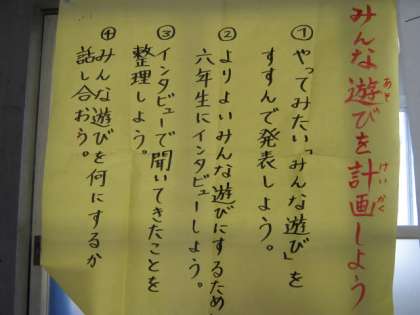 みんな遊びを計画しよう
あそ
けいかく
①やってみたい「みんな遊び」を
すすんで発表しよう。
②よりよいみんな遊びにするため
六年生にインタビューしよう。
③インタビューで聞いてきたことを
整理しよう。
④みんな遊びを何にするか
話し合おう。